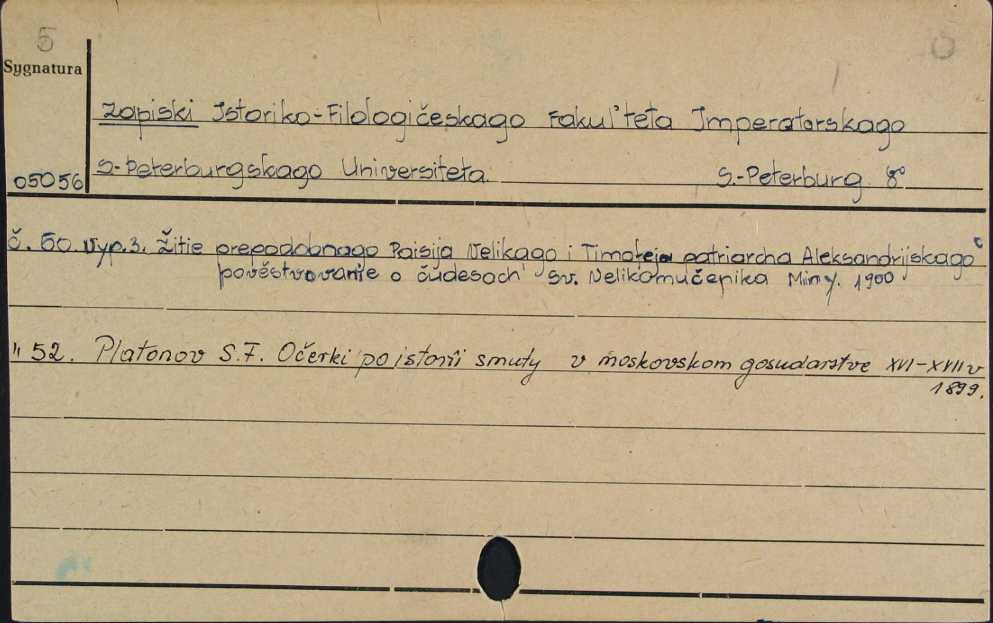 5
Sygnatura
Zapiski Istoriko-Filologičeskago Fakul'teta Imperatorskago
S-Peterburgskago Universiteta. S.-Peterburg 8°
05056
č. 50. Vyp. 3. Žitie prepodobnago Paisija Velikago i Timoteja patriarcha Aleksandrijskago
pověstvovanie o čudesach Sv. Velikomučenika Miny. 1900
" 52. Platonov S.F. Očerki po istorii smuty v moskovskom gosudarstve XVI-XVII v
1899.